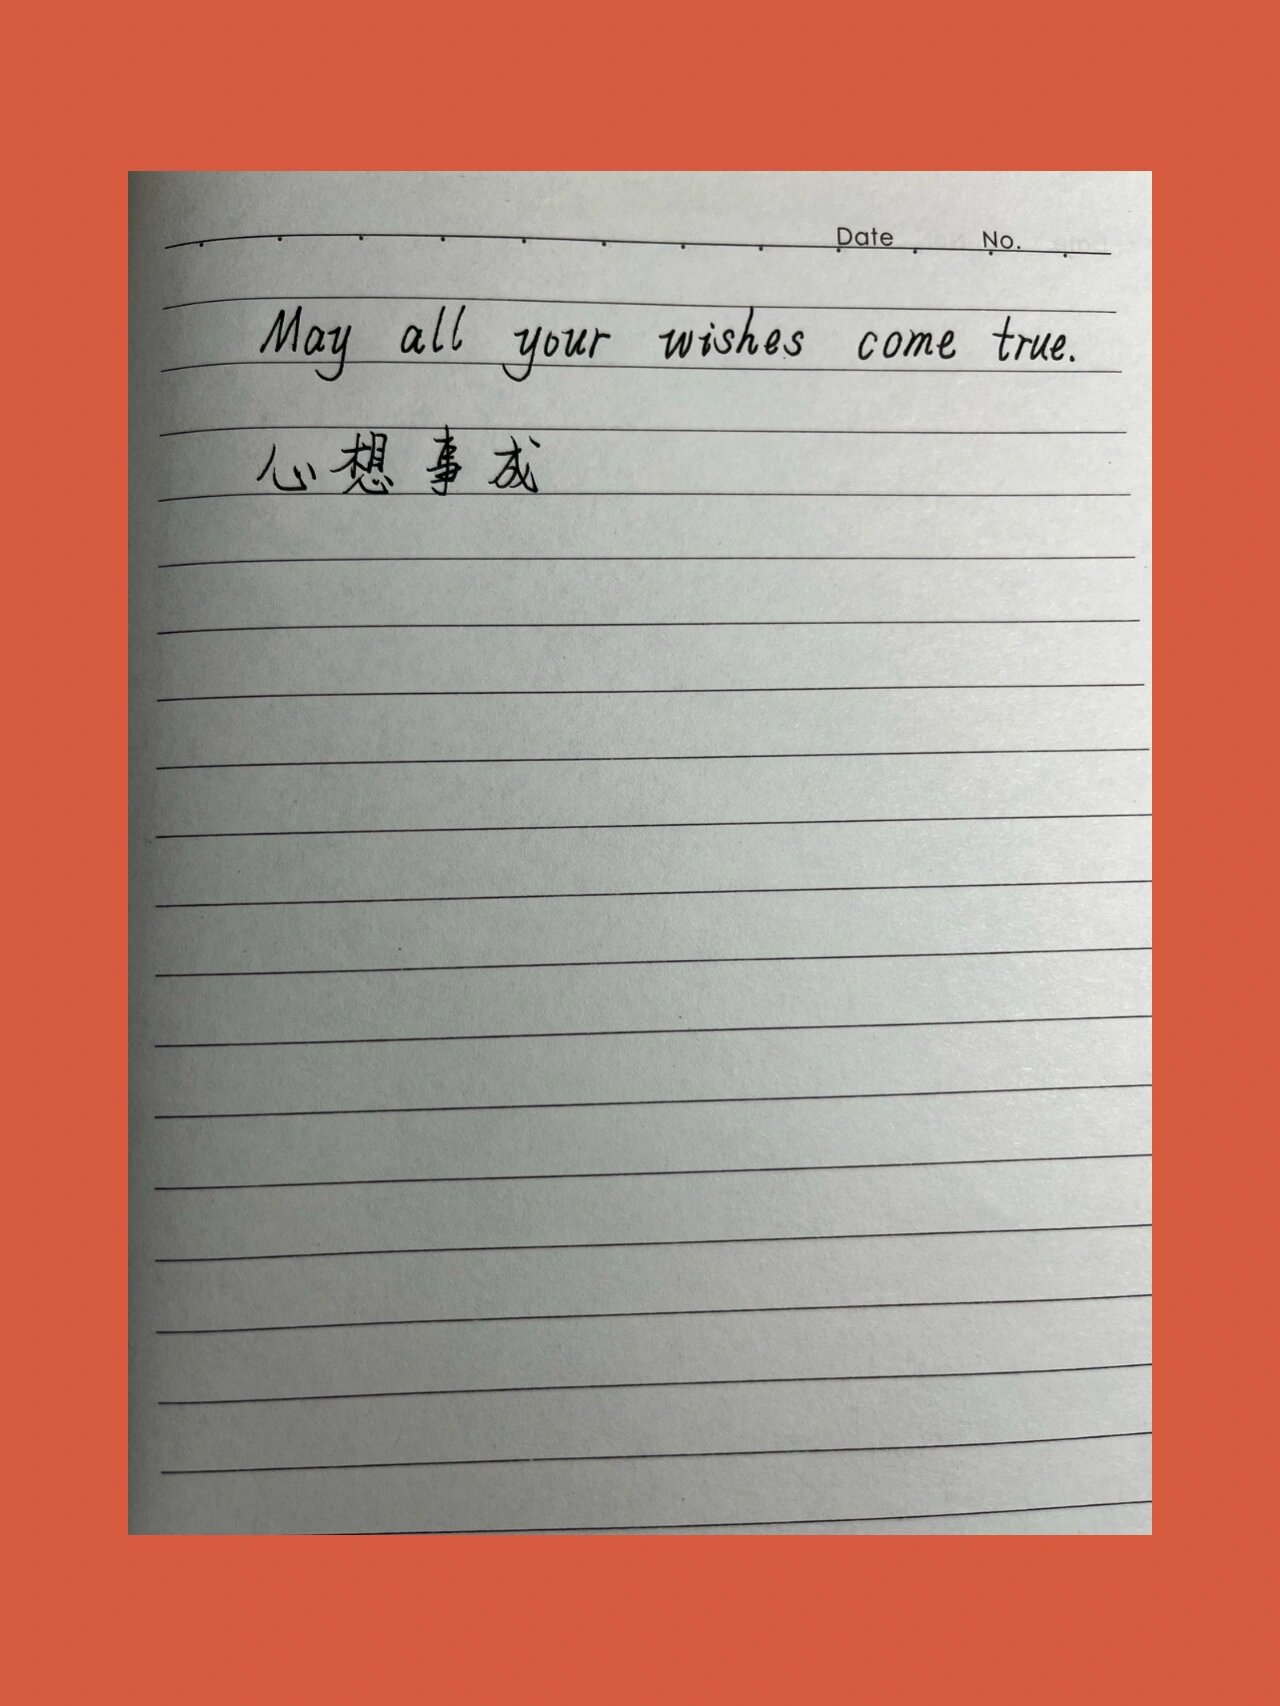 Date No.
May all your wishes come true.
心想事成